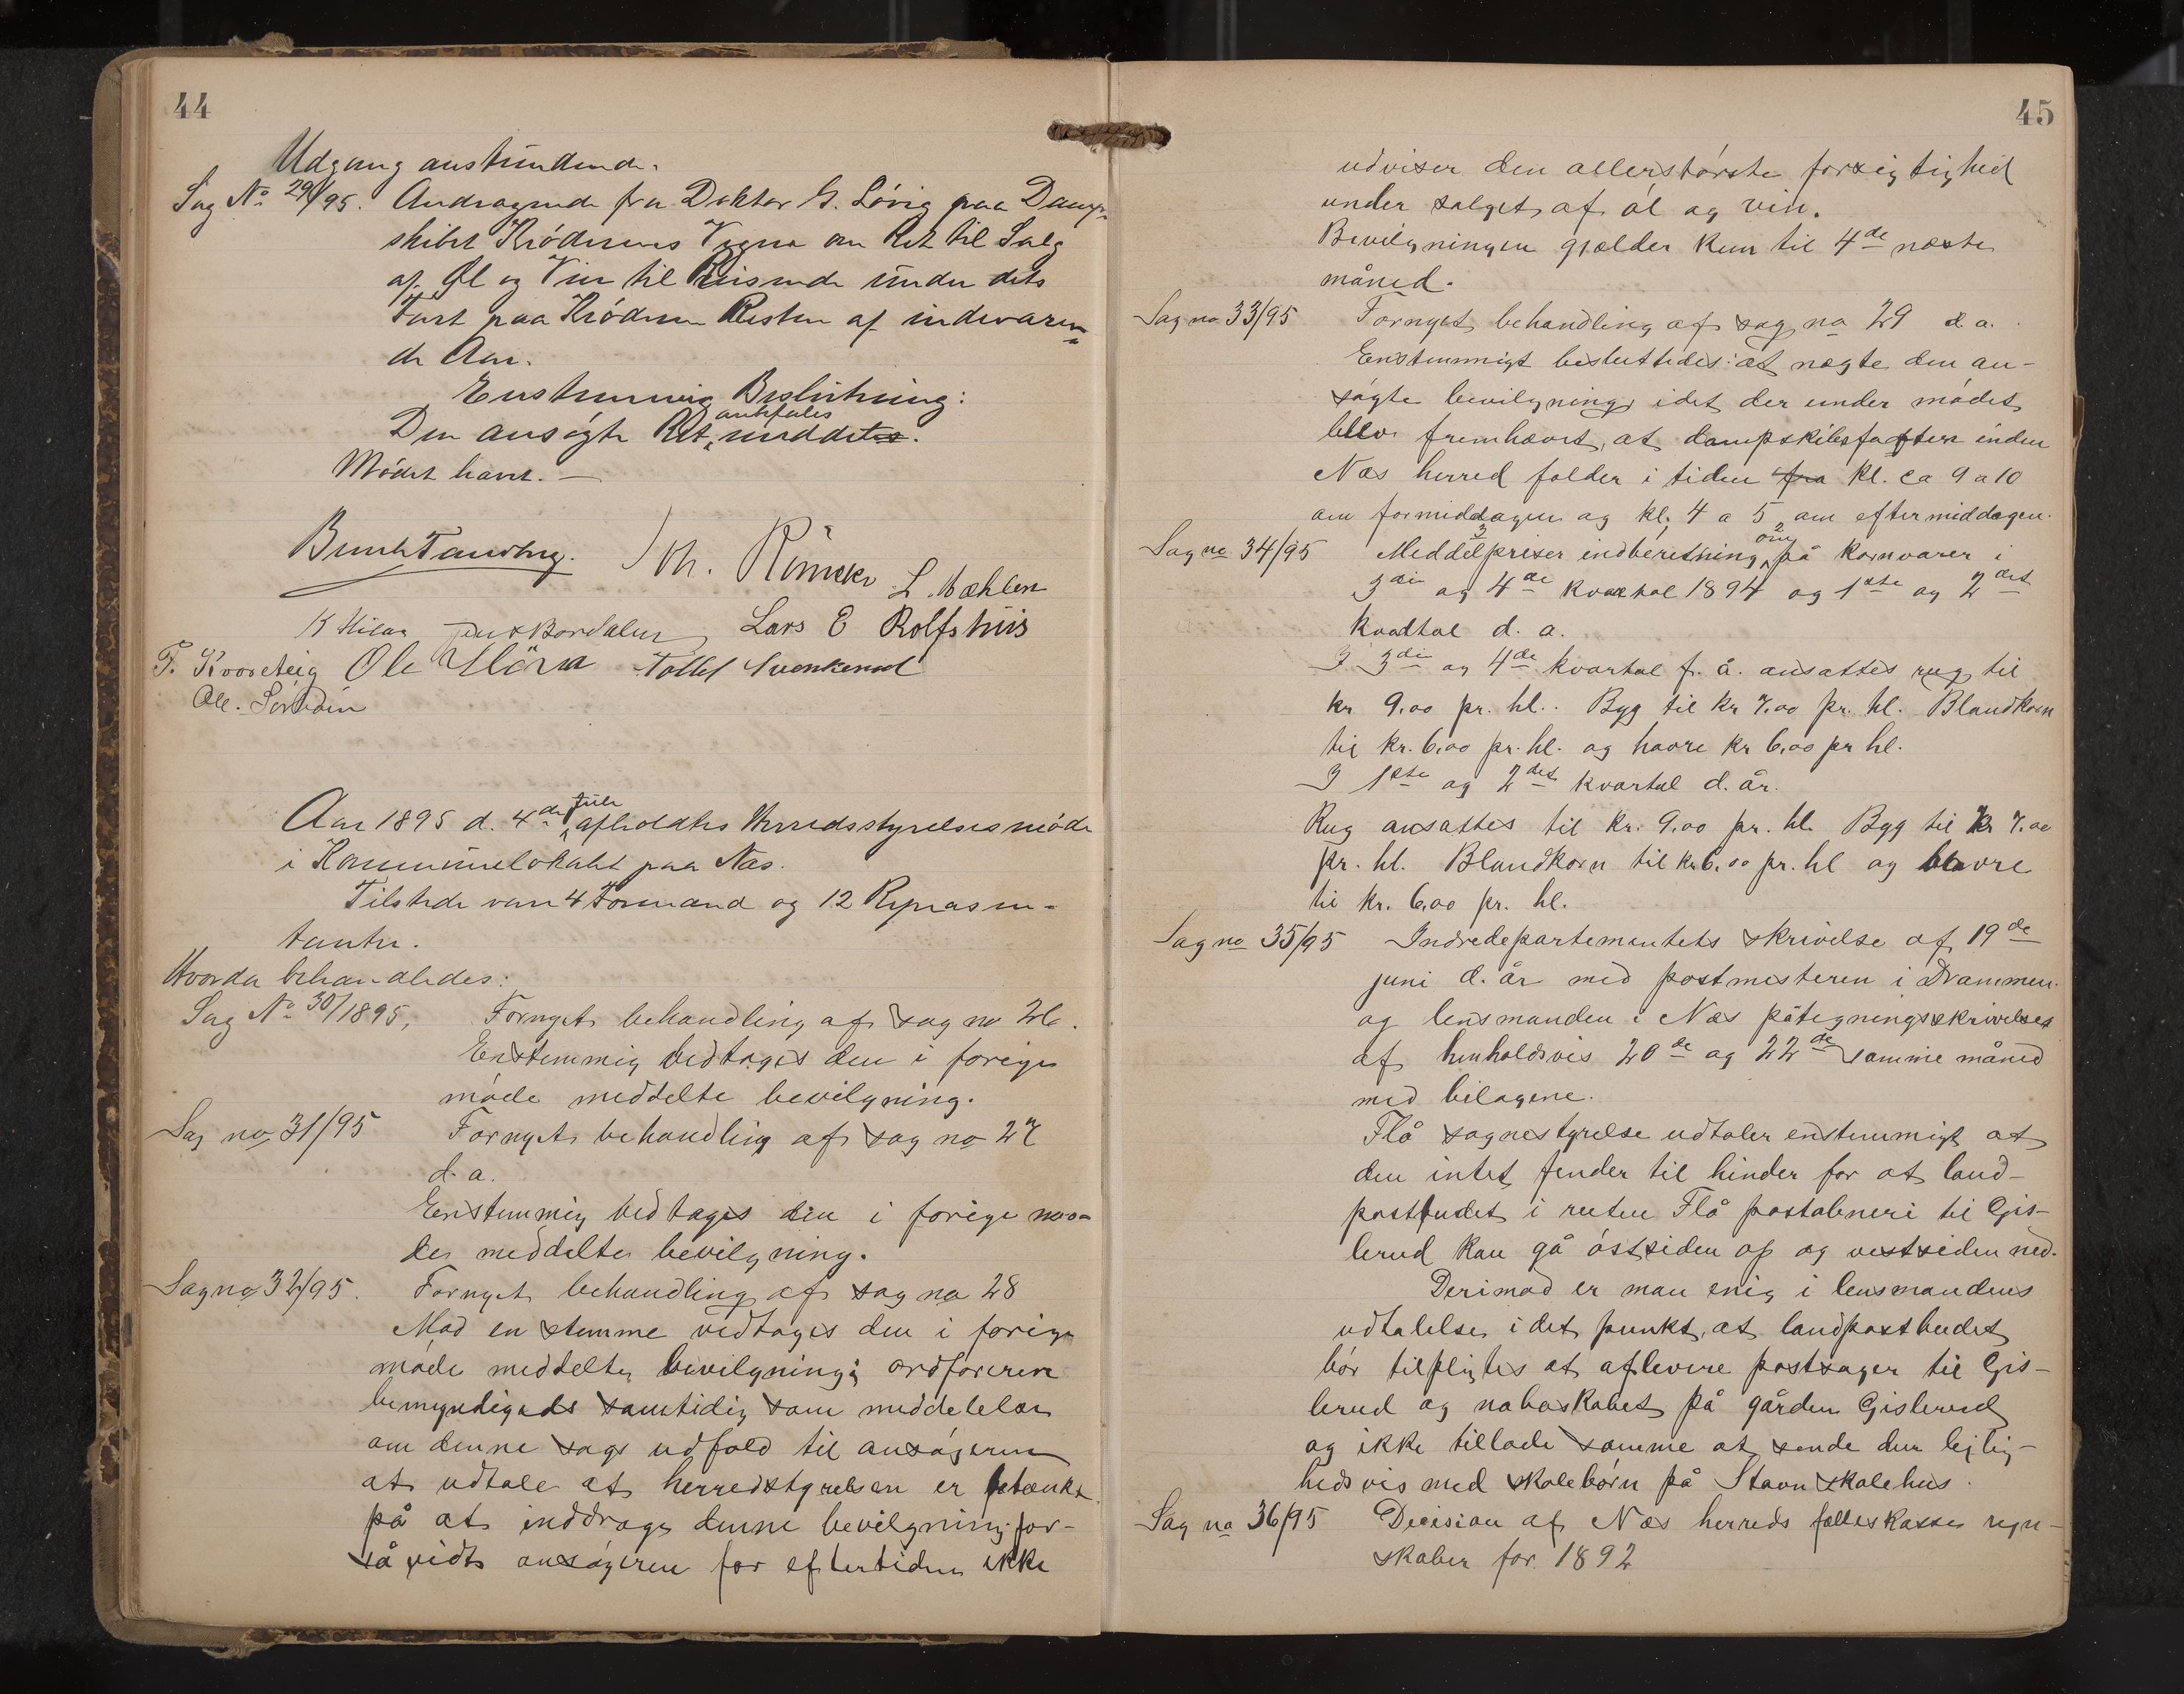 44
Udgang anstundende.
Sag No 29/95. Andragende fra Doktor G. Lövig paa Damp-
skibet Krödernes Vegne om Ret til Salg
af Öl og Vin til Reisende under dets
Fart paa Krödern Resten af indeværen-
de Aar.
Enstemmig Beslutning:
Den ansögte Ret anbefales meddelt.
Mödet hævet. —
Th. L. Mæhlen
Lars E Rolfshus
T. Ole Tollef Svenkerud
Ole.
Aar 1895 d. 4de Juli afholdtes Herredsstyrelsesmöde
i Kommunelokalet paa Næs.
Tilstede vare 4 Formænd og 12 Repræsen-
tanter.
Hvorda behandledes:
Sag No 30/1895, Fornyet behandling af sag no 26.
Enstemmig vedtoges den i forige
möde meddelte bevilgning.
Sag no 31/95 Fornyet behandling af sag no 27
d. a.
Enstemmig vedtages den i forige mø-
de meddelte bevilgning.
Sag no 32/95. Fornyet behandling af sag no 28
Mod en stemme vedtoges den i forige
möde meddelte bevilgning; ordföreren
bemyndigedes samtidig som meddelelse
om denne sags udfald til ansögeren
at udtale at herredstyrelsen er betænkt
på at inddrage denne bevilgning for-
såvidt ansögeren for eftertiden ikke
45
udviser den allerstörste forsigtighed
under salget af öl og vin.
Bevilgningen gjælder kun til 4de næste
måned.
Sag no 33/95 Fornyet behandling af sag no 29 d. a.
Enstemmigt besluttedes: at nægte den an-
søgte bevilgning idet der under mödet
blev fremhævet, at dampskibsfarten inden
Næs herred falder i tiden fra kl. ca 9 a 10
om formiddagen og kl. 4 a 5 om eftermiddagen.
Sag no 34/95 Meddelpriser indberetning om på kornvarer i
3die og 4de kvartal 1894 og 1ste og 2det
kvadtal d. a.
I 3die og 4de kvartal f. å. ansattes rug til
kr 9.00 pr. hl. Byg til kr 7.00 pr. hl. Blandkorn
til kr. 6.00 pr. hl. og havre kr 6.00 pr hl.
I 1ste og 2det kvartal d. år.
Rug ansattes til kr. 9.00 pr. hl. Byg til kr 7.00
pr. hl. Blandkorn til kr. 6.00 pr. hl og havre
til kr. 6.00 pr. hl.
Sag no 35/95 Indredepartementets skrivelse af 19de
juni d. år med postmesteren i Drammen
og lensmanden i Næs påtegningsskrivelser
af henholdsvis 20de og 22de samme måned
med bilagene.
Flå sognestyrelse udtaler enstemmigt at
den intet finder til hinder for at land-
postbudet i ruten Flå postabneri til Gis-
lerud kan gå östsiden op og vestsiden ned.
Derimod er man enig i lensmandens
udtalelse i det punkt, at landpostbudet
bör tilpligtes at aflevere postsager til Gis-
lerud og naboskabet på gården Gislerud
og ikke tillade samme at sende dem lejlig-
hedsvis med skolebörn på Stavn skolehus.
Sag no 36/95 Decision af Næs herreds fælleskasses regn-
skaber for 1892